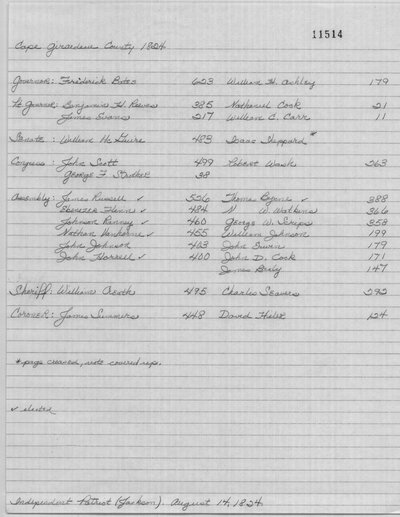 11514
Cape Girardeau County 1824
Governor: Frederick Bates 623 William H. Ashley 179
Lt Governor: Benjamin H Reeves 385 Nathaniel Cook 21
James Evans 217 William C. Carr 11
Senate: William McGuire 483 Isaac Sheppard*
Congress: John Scott 499 Robert Wash 263
George F. 38
Assembly: James Russell ✓ 526 Thomas Byrne ✓ 388
Ebenezer Flinn ✓ 484 N W. Watkins 366
Johnson Ranney ✓ 460 George W. Scripps 358
Nathan Vanhorne ✓ 455 William Johnson 199
John Johnson 403 John Gwen 179
John Horrell ✓ 400 John D. Cook 171
James 147
Sheriff: William Creath 495 Charles Seavers 292
Coroner: James Summers 448 David 124
*page creased, vote covered up.
✓ elected
Independent Patriot (Jackson). August 14, 1824